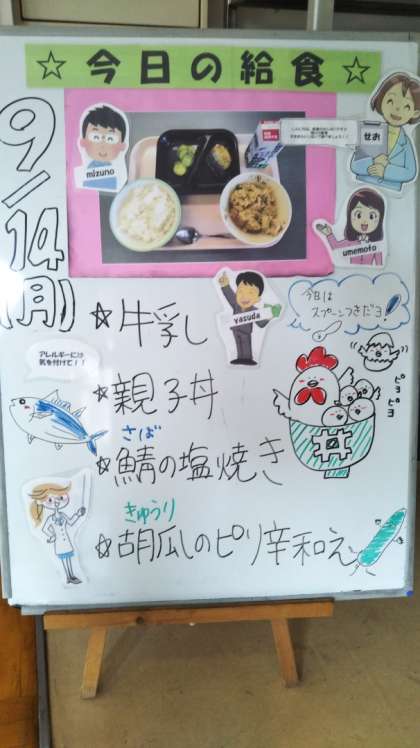 ☆今日の給食☆
9/14
(月)
mizuno
せお
umemoto
yasuda
今日は
スプーンつきだヨ!
アレルギーには
気を付けて!!
☆牛乳
☆親子丼
さば
☆鯖の塩焼き
きゅうり
☆胡瓜のピリ辛和え
ピヨ
ピヨ
丼